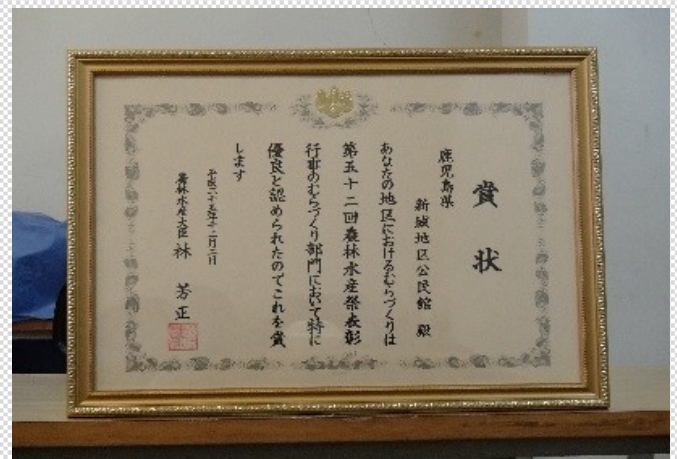 賞状
鹿児島県
新城地区公民館 殿
あなたの地区におけるむらづくりは
第五十二回農林水産祭表彰
行事のむらづくり部門において特に
優良と認められたのでこれを賞
します
平成二十五年十二月二日
農林水産大臣 林 芳正